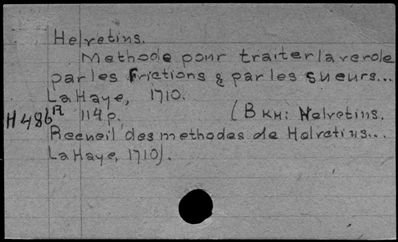 Helvetius.
Methode pour traiter la verole
par les frictions & par les sueurs...
La Haye, 1710.
H486R 114p. (Bkh: Helvetius.
Recueil des methodes de Helvetius...
La Haye, 1710).